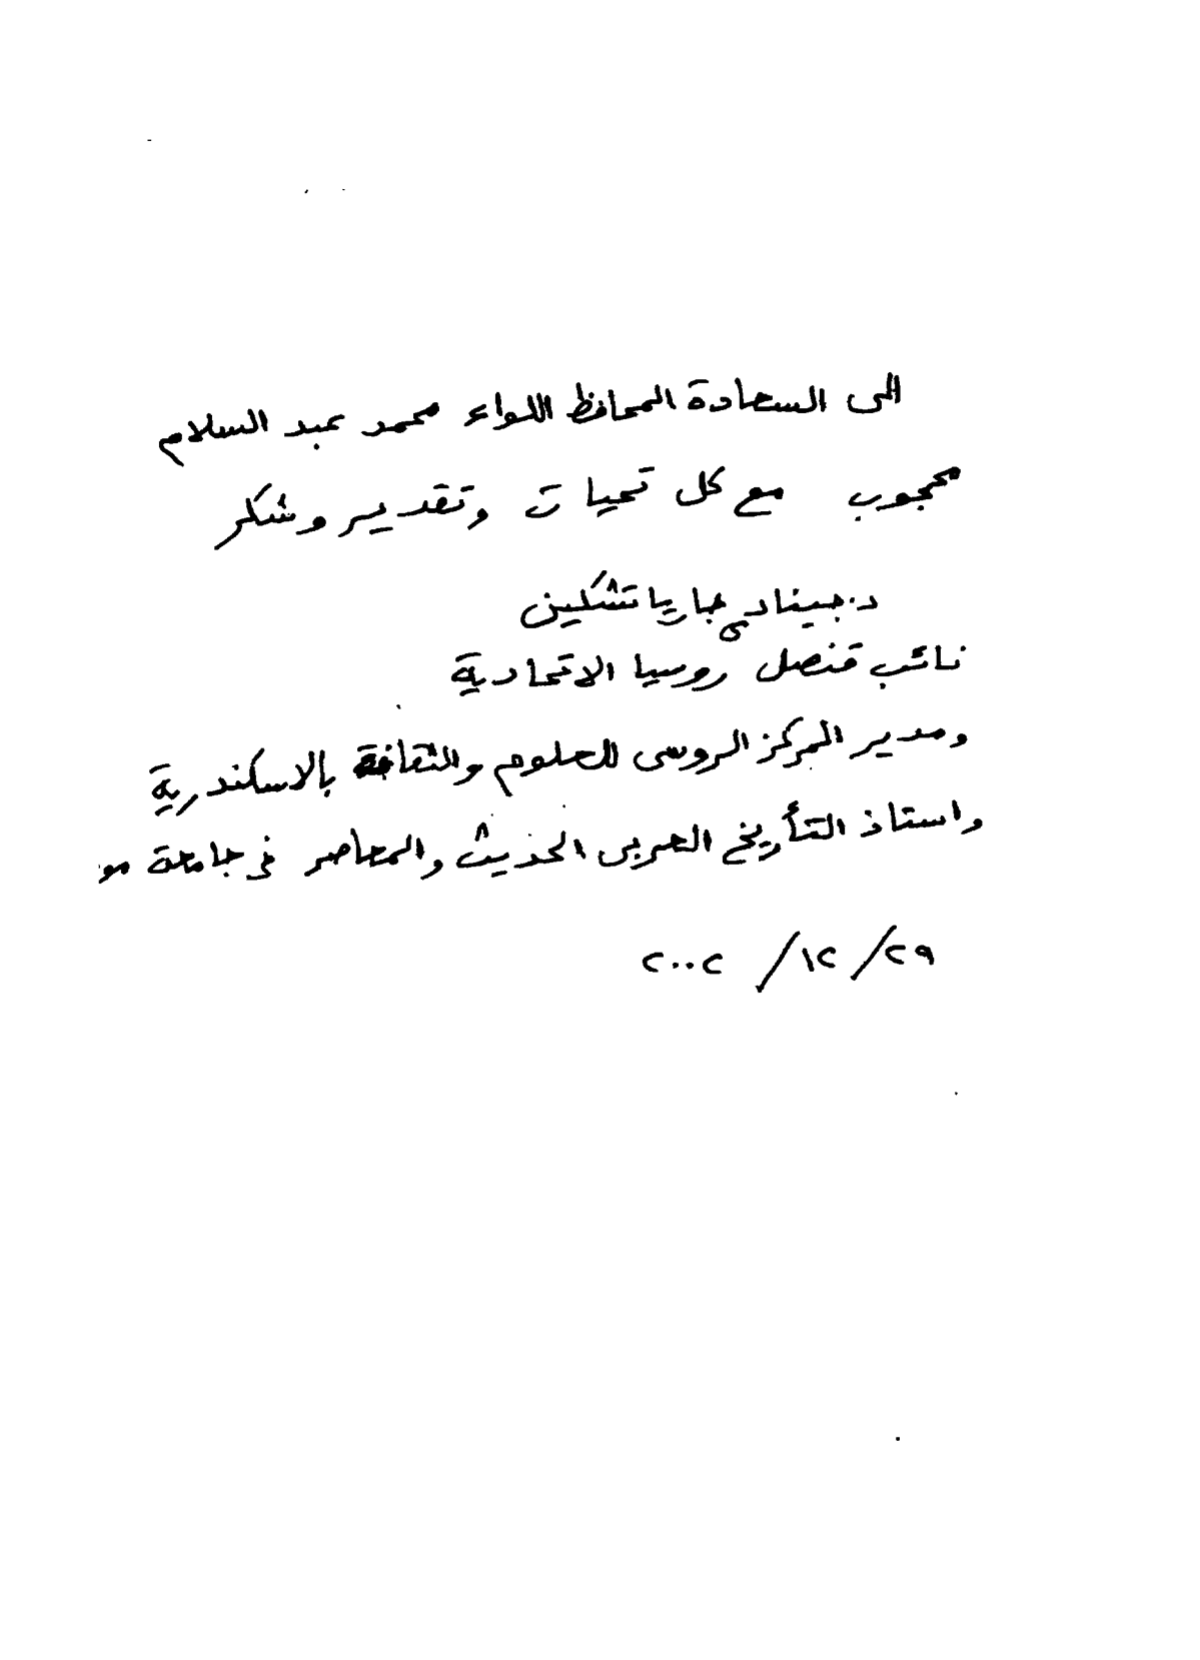 الى السعادة المحافظ اللواء محمد عبد السلام
محجوب مع كل تحيات وتقدير وشكر
د. جينادى جارياتشكين
نائب قنصل روسيا الاتحادية
ومدير المركز الروسى للعلوم والثقافة بالاسكندرية
واستاذ التأريخ العربى الحديث والمعاصر فى جامعة مو
٢٩/ ١٢/ ٢٠٠٢